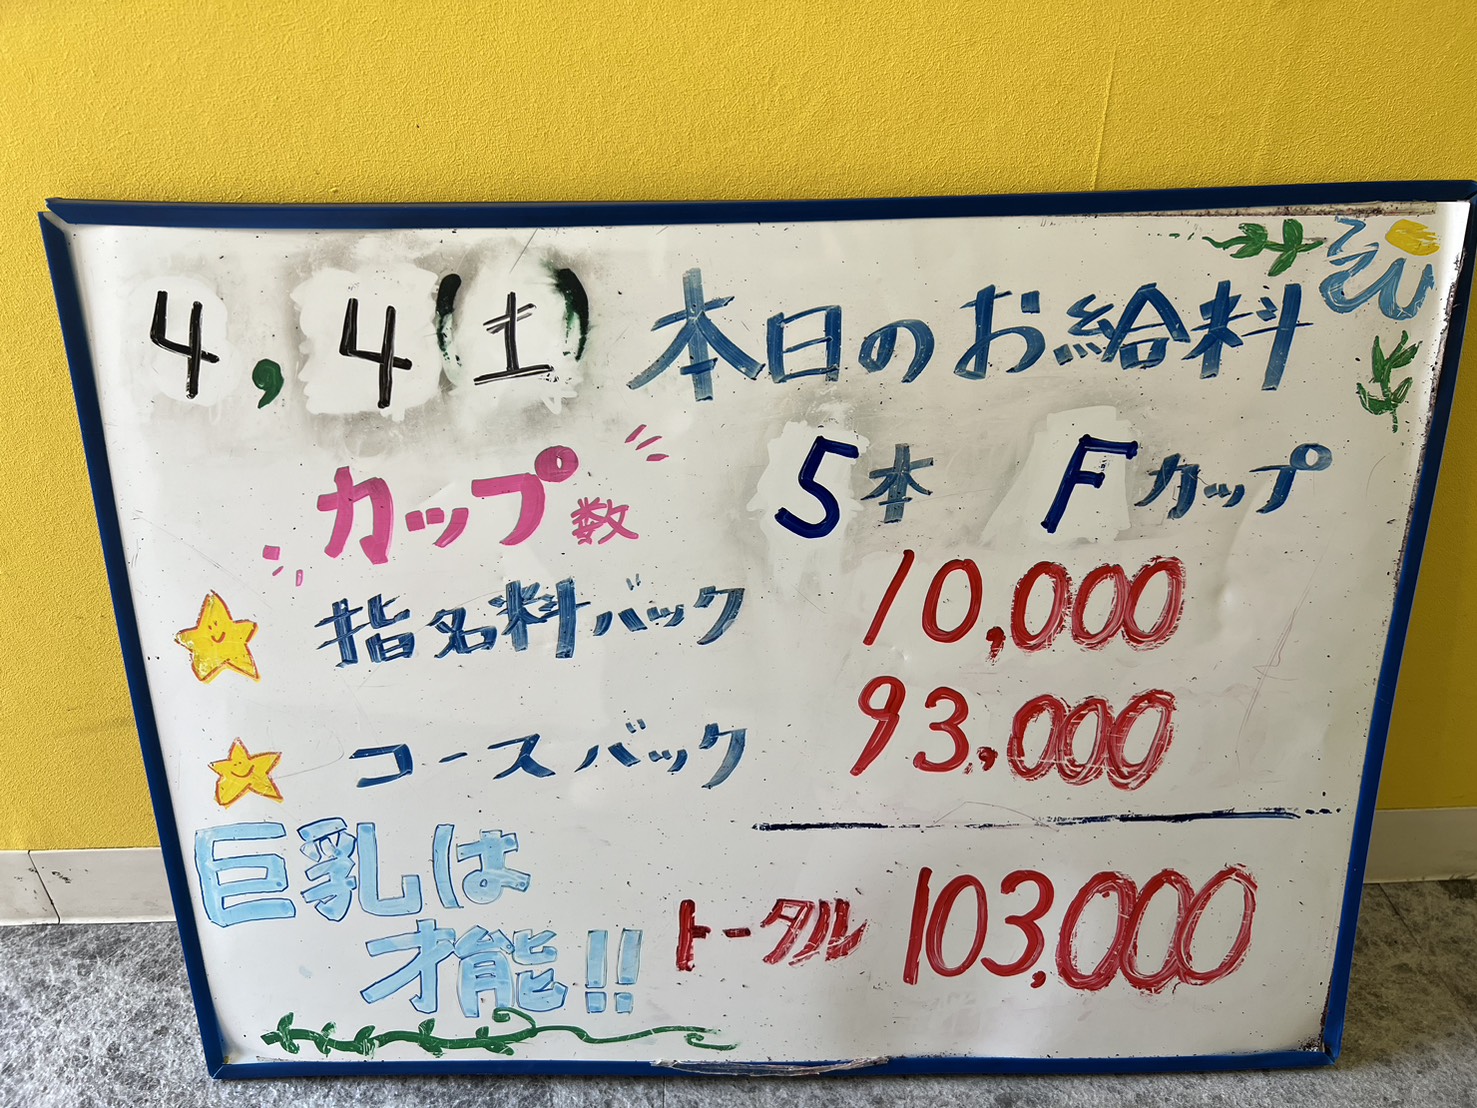 4,4(土) 本日のお給料
カップ数 5本 Fカップ
指名料バック 10,000
コースバック 93,000
巨乳は
才能!!
トータル 103,000